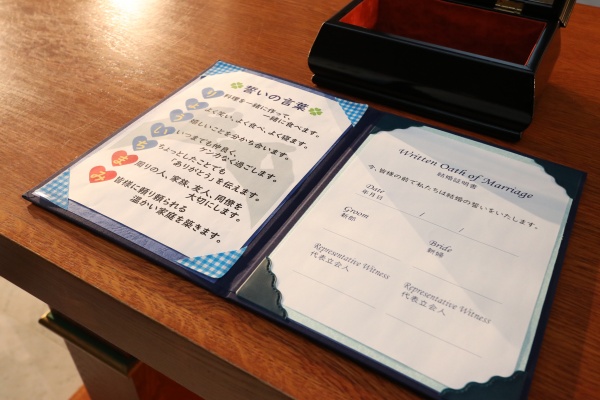 誓いの言葉
り 料理を一緒に作って、
一緒に食べます。
よ よく笑い、よく食べ、よく寝ます。
う 嬉しいことを分かち合います。
い いつまでも仲良く、
ケンカなく過ごします。
ち ちょっとしたことでも
「ありがとう」を伝えます。
ま 周りの人、家族、友人、同僚を
大切にします。
み 皆様に頼り頼られる
温かい家庭を築きます。
Written Oath of Marriage
結婚証明書
今、皆様の前で私たちは結婚の誓いをいたします。
Date
年月日 / /
Groom
新郎
Bride
新婦
Representative Witness
代表立会人
Representative Witness
代表立会人